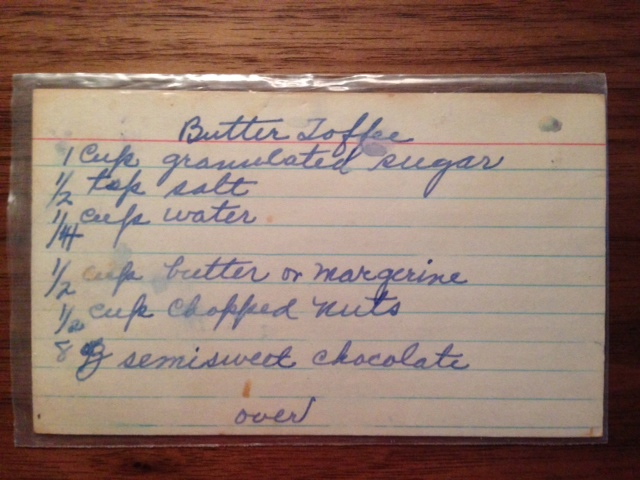 Butter Toffee
1 cup granulated sugar
1/2 tsp salt
1/4 cup water
1/2 cup butter or margerine
1/2 cup chopped nuts
8 semisweet chocolate
over